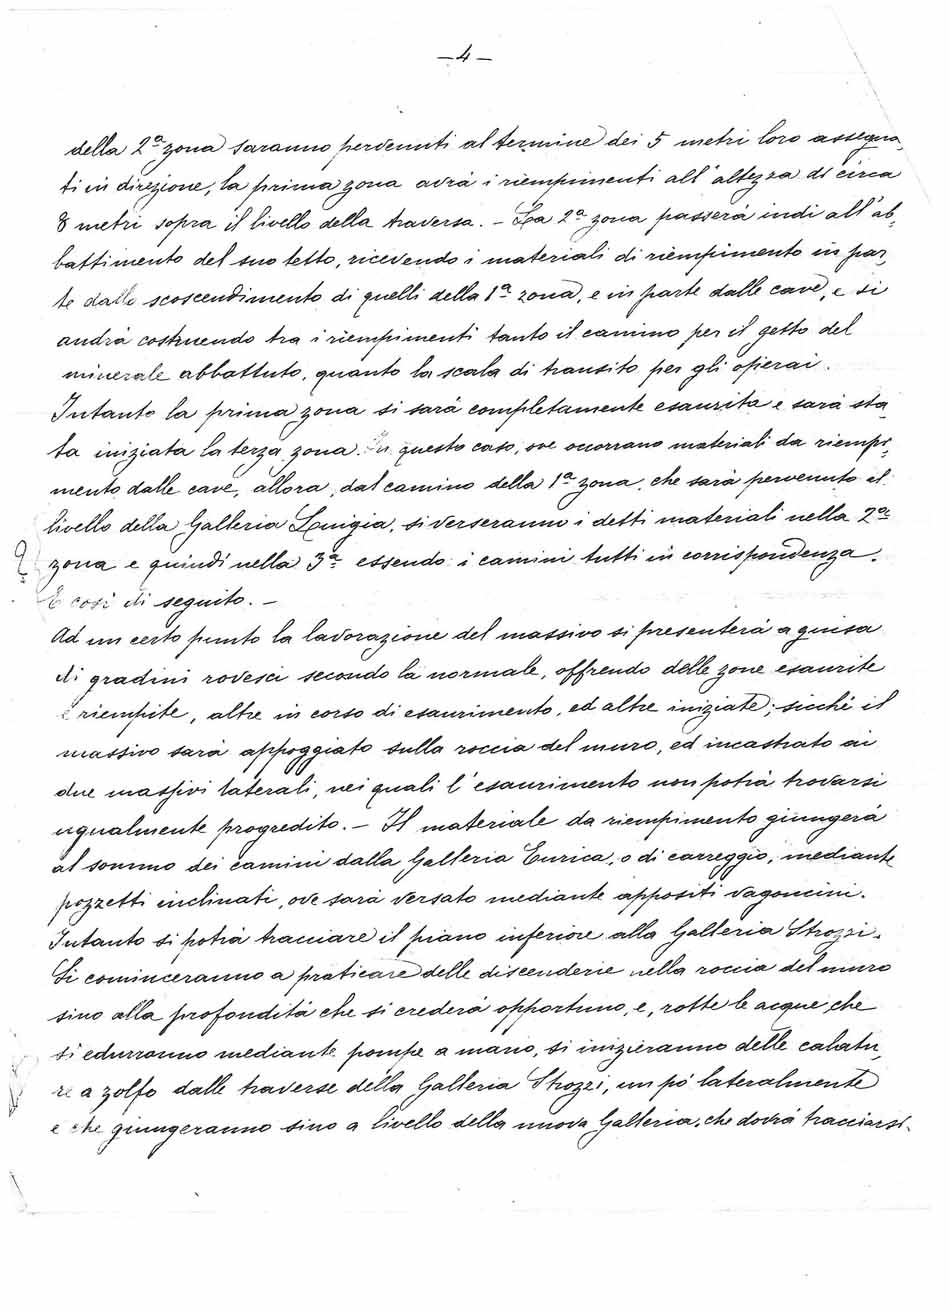 — 4 —
della 2ª zona saranno pervenuti al termine dei 5 metri loro assegna-
ti in direzione, la prima zona avrà i riempimenti all'altezza di circa
8 metri sopra il livello della traversa. — La 2ª zona passerà indi all'ab-
battimento del suo tetto, ricevendo i materiali di riempimento in par-
te dallo scoscendimento di quelli della 1ª zona, e in parte dalle cave, e si
andrà costruendo tra i riempimenti tanto il camino per il getto del
minerale abbattuto, quanto la scala di transito per gli operai.
Intanto la prima zona si sarà completamente esaurita e sarà sta-
ta iniziata la terza zona. In questo caso, ove occorrano materiali da riempi-
mento dalle cave, allora, dal camino della 1ª zona, che sarà pervenuto al
livello della Galleria Luigia, si verseranno i detti materiali nella 2ª
? zona e quindi nella 3ª essendo i camini tutti in corrispondenza.
E così di seguito. —
Ad un certo punto la lavorazione del massivo si presenterà a guisa
di gradini rovesci secondo la normale, offrendo delle zone esaurite
e riempite, altre in corso di esaurimento, ed altre iniziate; sicchè il
massivo sarà appoggiato sulla roccia del muro, ed incastrato ai
due massivi laterali, nei quali l'esaurimento non potrà trovarsi
ugualmente progredito. — Il materiale da riempimento giungerà
al sommo dei camini dalla Galleria Enrica, o di carreggio, mediante
pozzetti inclinati, ove sarà versato mediante appositi vagoncini.
Intanto si potrà tracciare il piano inferiore alla Galleria Strozzi.
Si cominceranno a praticare delle discenderie nella roccia del muro
sino alla profondità che si crederà opportuno, e, rotte le acque, che
si edurranno mediante pompe a mano, si inizieranno delle calatu-
re a zolfo dalle traverse della Galleria Strozzi, un pò lateralmente
e che giungeranno sino a livello della nuova Galleria, che dovrà tracciarsi.